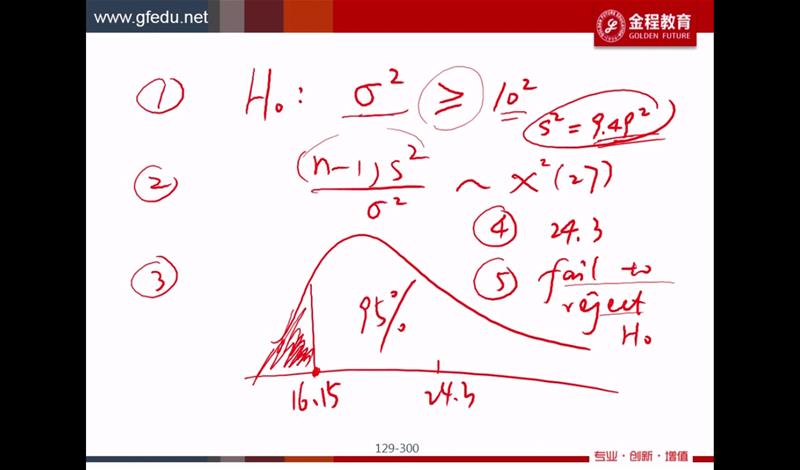 www.gfedu.net
金程教育
GOLDEN FUTURE
① H₀: σ² ≥ 10²
s² = 9.49²
② (n-1)s² / σ² ~ χ²(27)
④ 24.3
③
⑤ fail to
reject
H₀
95%
16.15
24.3
129-300
专业·创新·增值